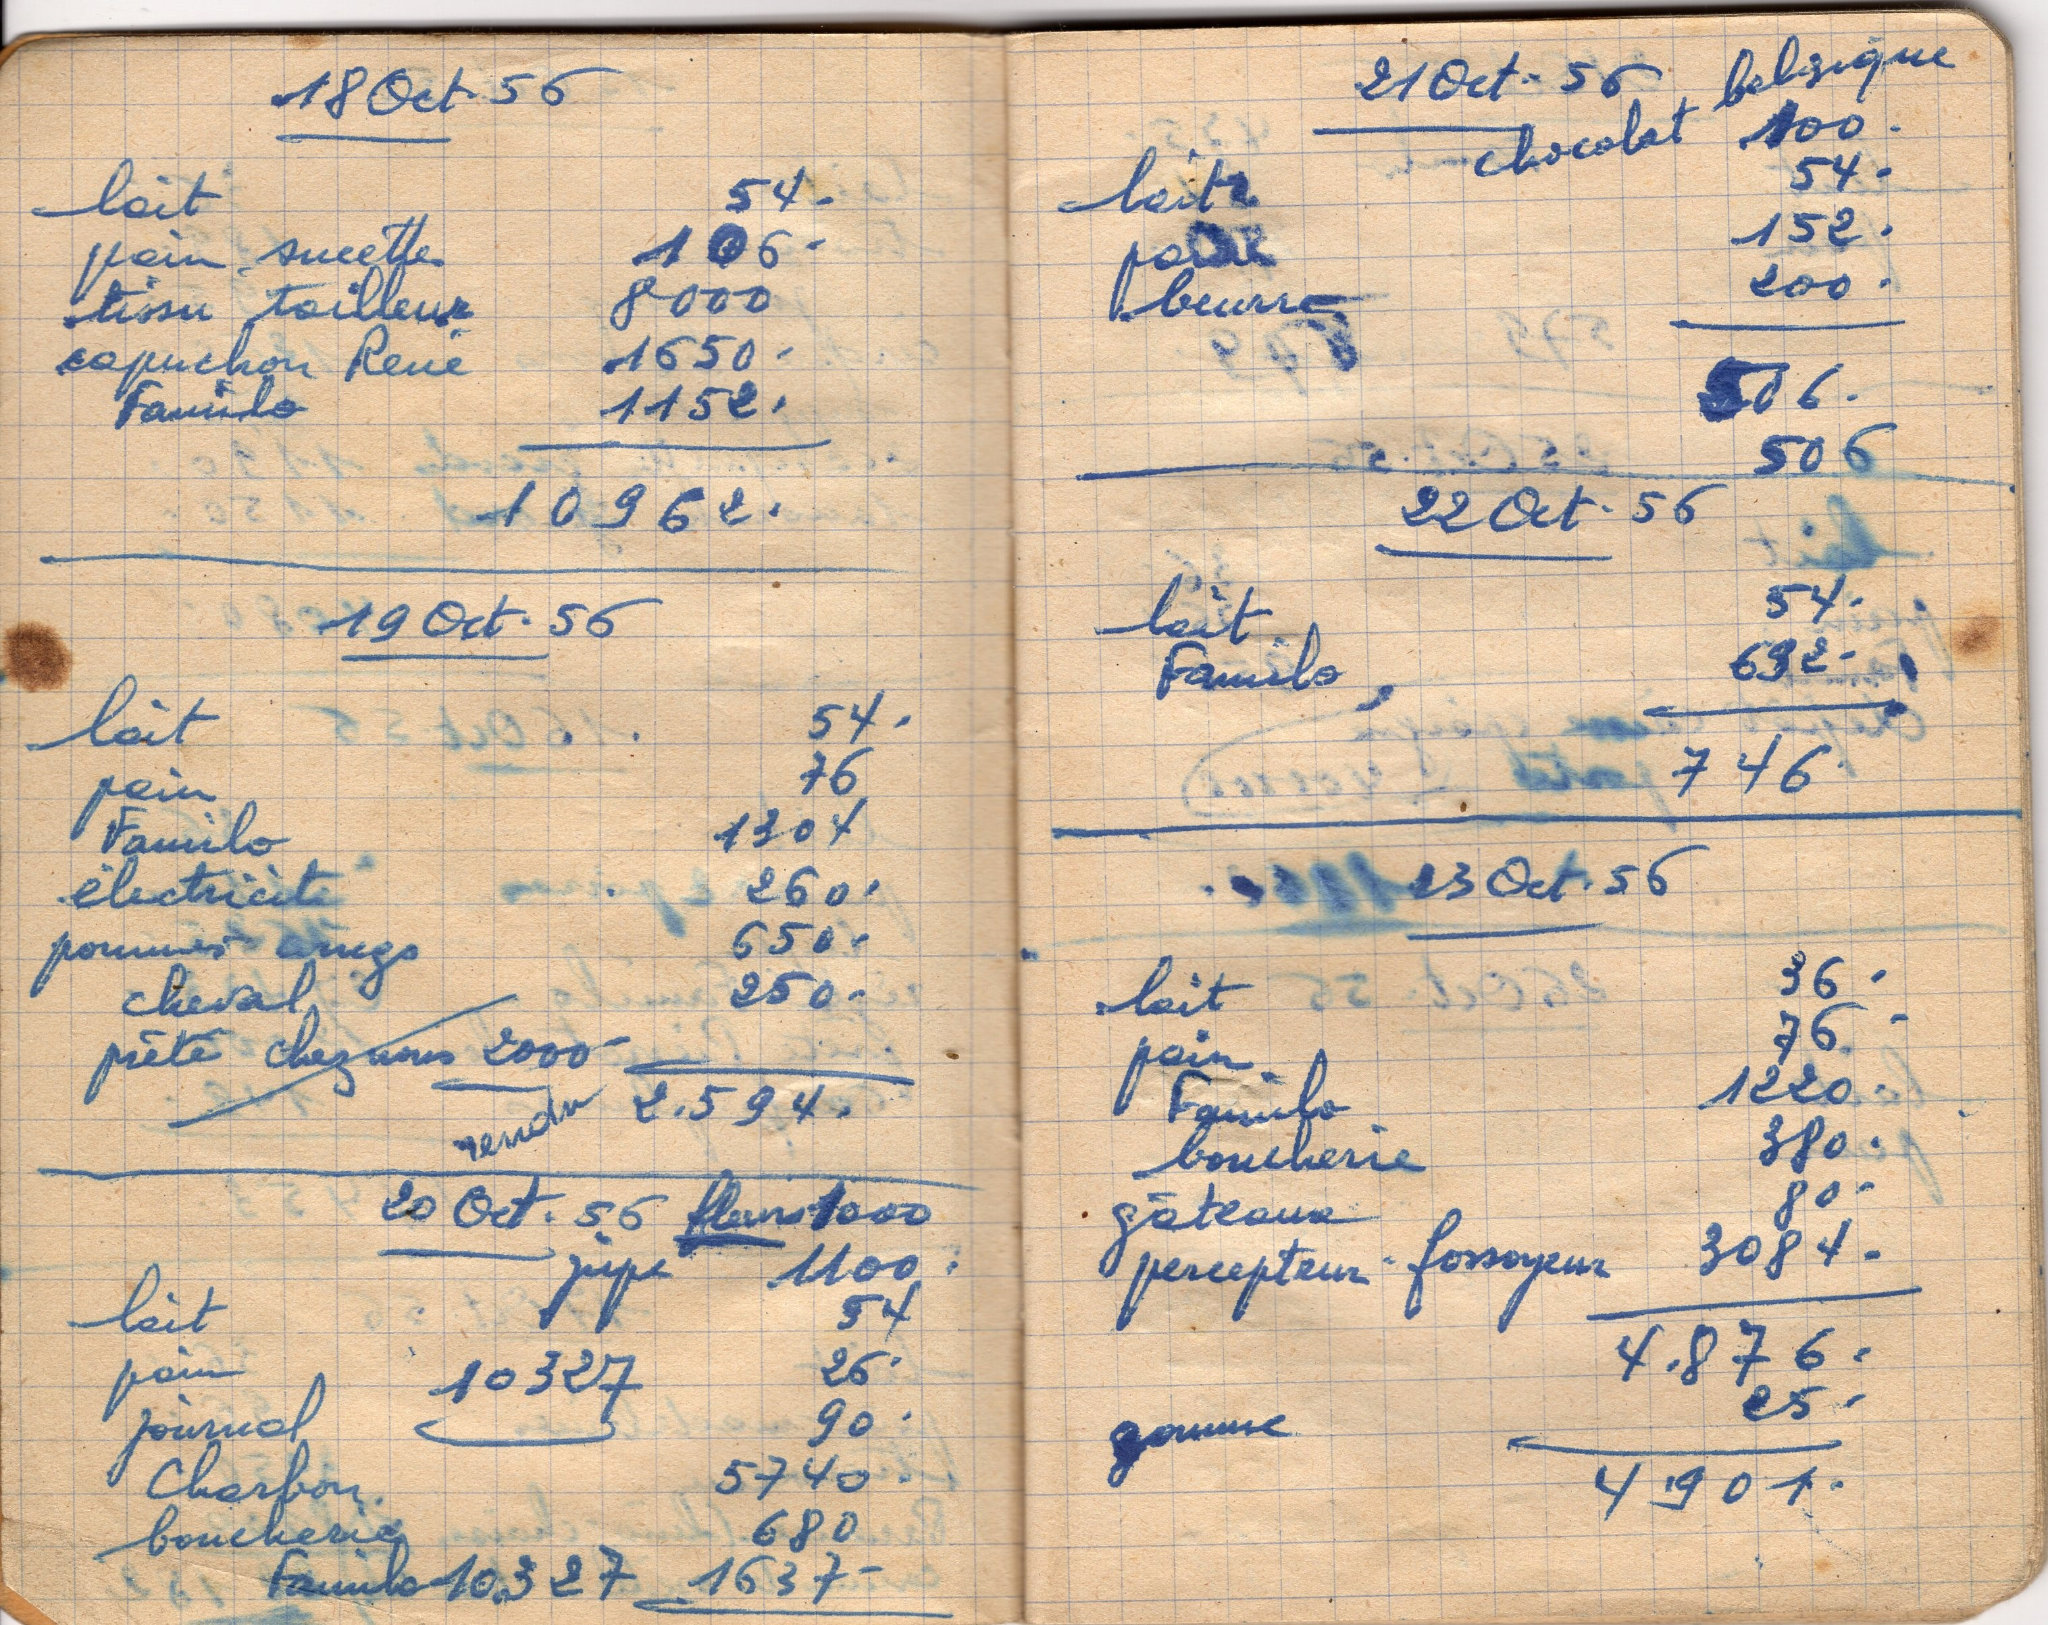 18 Oct. 56
lait 54.
pain sucette 106.
tissu tailleur 8000
capuchon René 1650.
Familo 1152.
10962.
19 Oct. 56
lait 54.
pain 76
Familo 1304
électricité 260.
pommes 650.
cheval 250.
prêté chez nous 2000
2.594.
rendu
20 Oct. 56 fleurs 1000
jupe 1100.
lait 54
pain 26.
10327
journal 90.
Charbon 5740.
boucherie 680
Familo 10.327 1637
21 Oct. 56 belgique
chocolat 100.
lait 54.
152.
beurre 200.
506.
506
22 Oct. 56
lait 54.
Familo 692.
746
23 Oct. 56
lait 36.
pain 76.
Familo 1220.
boucherie 380.
gâteaux 80.
percepteur - fossoyeur 3084.
4.876.
gomme 25.
4901.